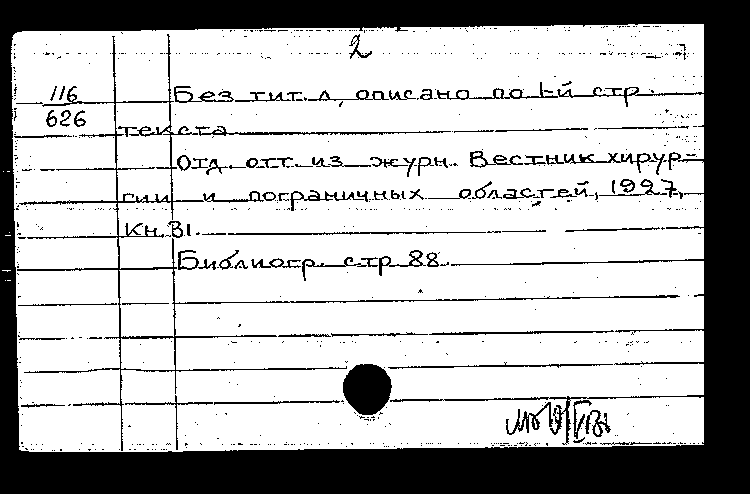 2
116
626
Без тит. л, описано по 1-й стр.
текста
Отд. отт. из журн. Вестник хирур-
гии и пограничных областей, 1927,
кн. 31.
Библиогр. стр 88.